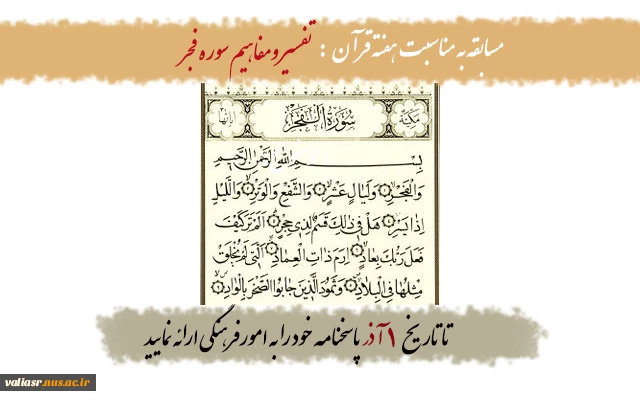 مسابقه به مناسبت هفته قرآن : تفسیر و مفاهیم سوره فجر
مکیة
سورة الفجر
بِسْمِ اللهِ الرَّحْمٰنِ الرَّحِيمِ
وَالْفَجْرِ وَلَيَالٍ عَشْرٍ وَالشَّفْعِ وَالْوَتْرِ وَاللَّيْلِ
إِذَا يَسْرِ هَلْ فِي ذٰلِكَ قَسَمٌ لِذِي حِجْرٍ أَلَمْ تَرَ كَيْفَ
فَعَلَ رَبُّكَ بِعَادٍ إِرَمَ ذَاتِ الْعِمَادِ الَّتِي لَمْ يُخْلَقْ
مِثْلُهَا فِي الْبِلَادِ وَثَمُودَ الَّذِينَ جَابُوا الصَّخْرَ بِالْوَادِ
تا تاریخ ۱ آذر پاسخنامه خود را به امور فرهنگی ارائه نمایید
valiasr.nus.ac.ir